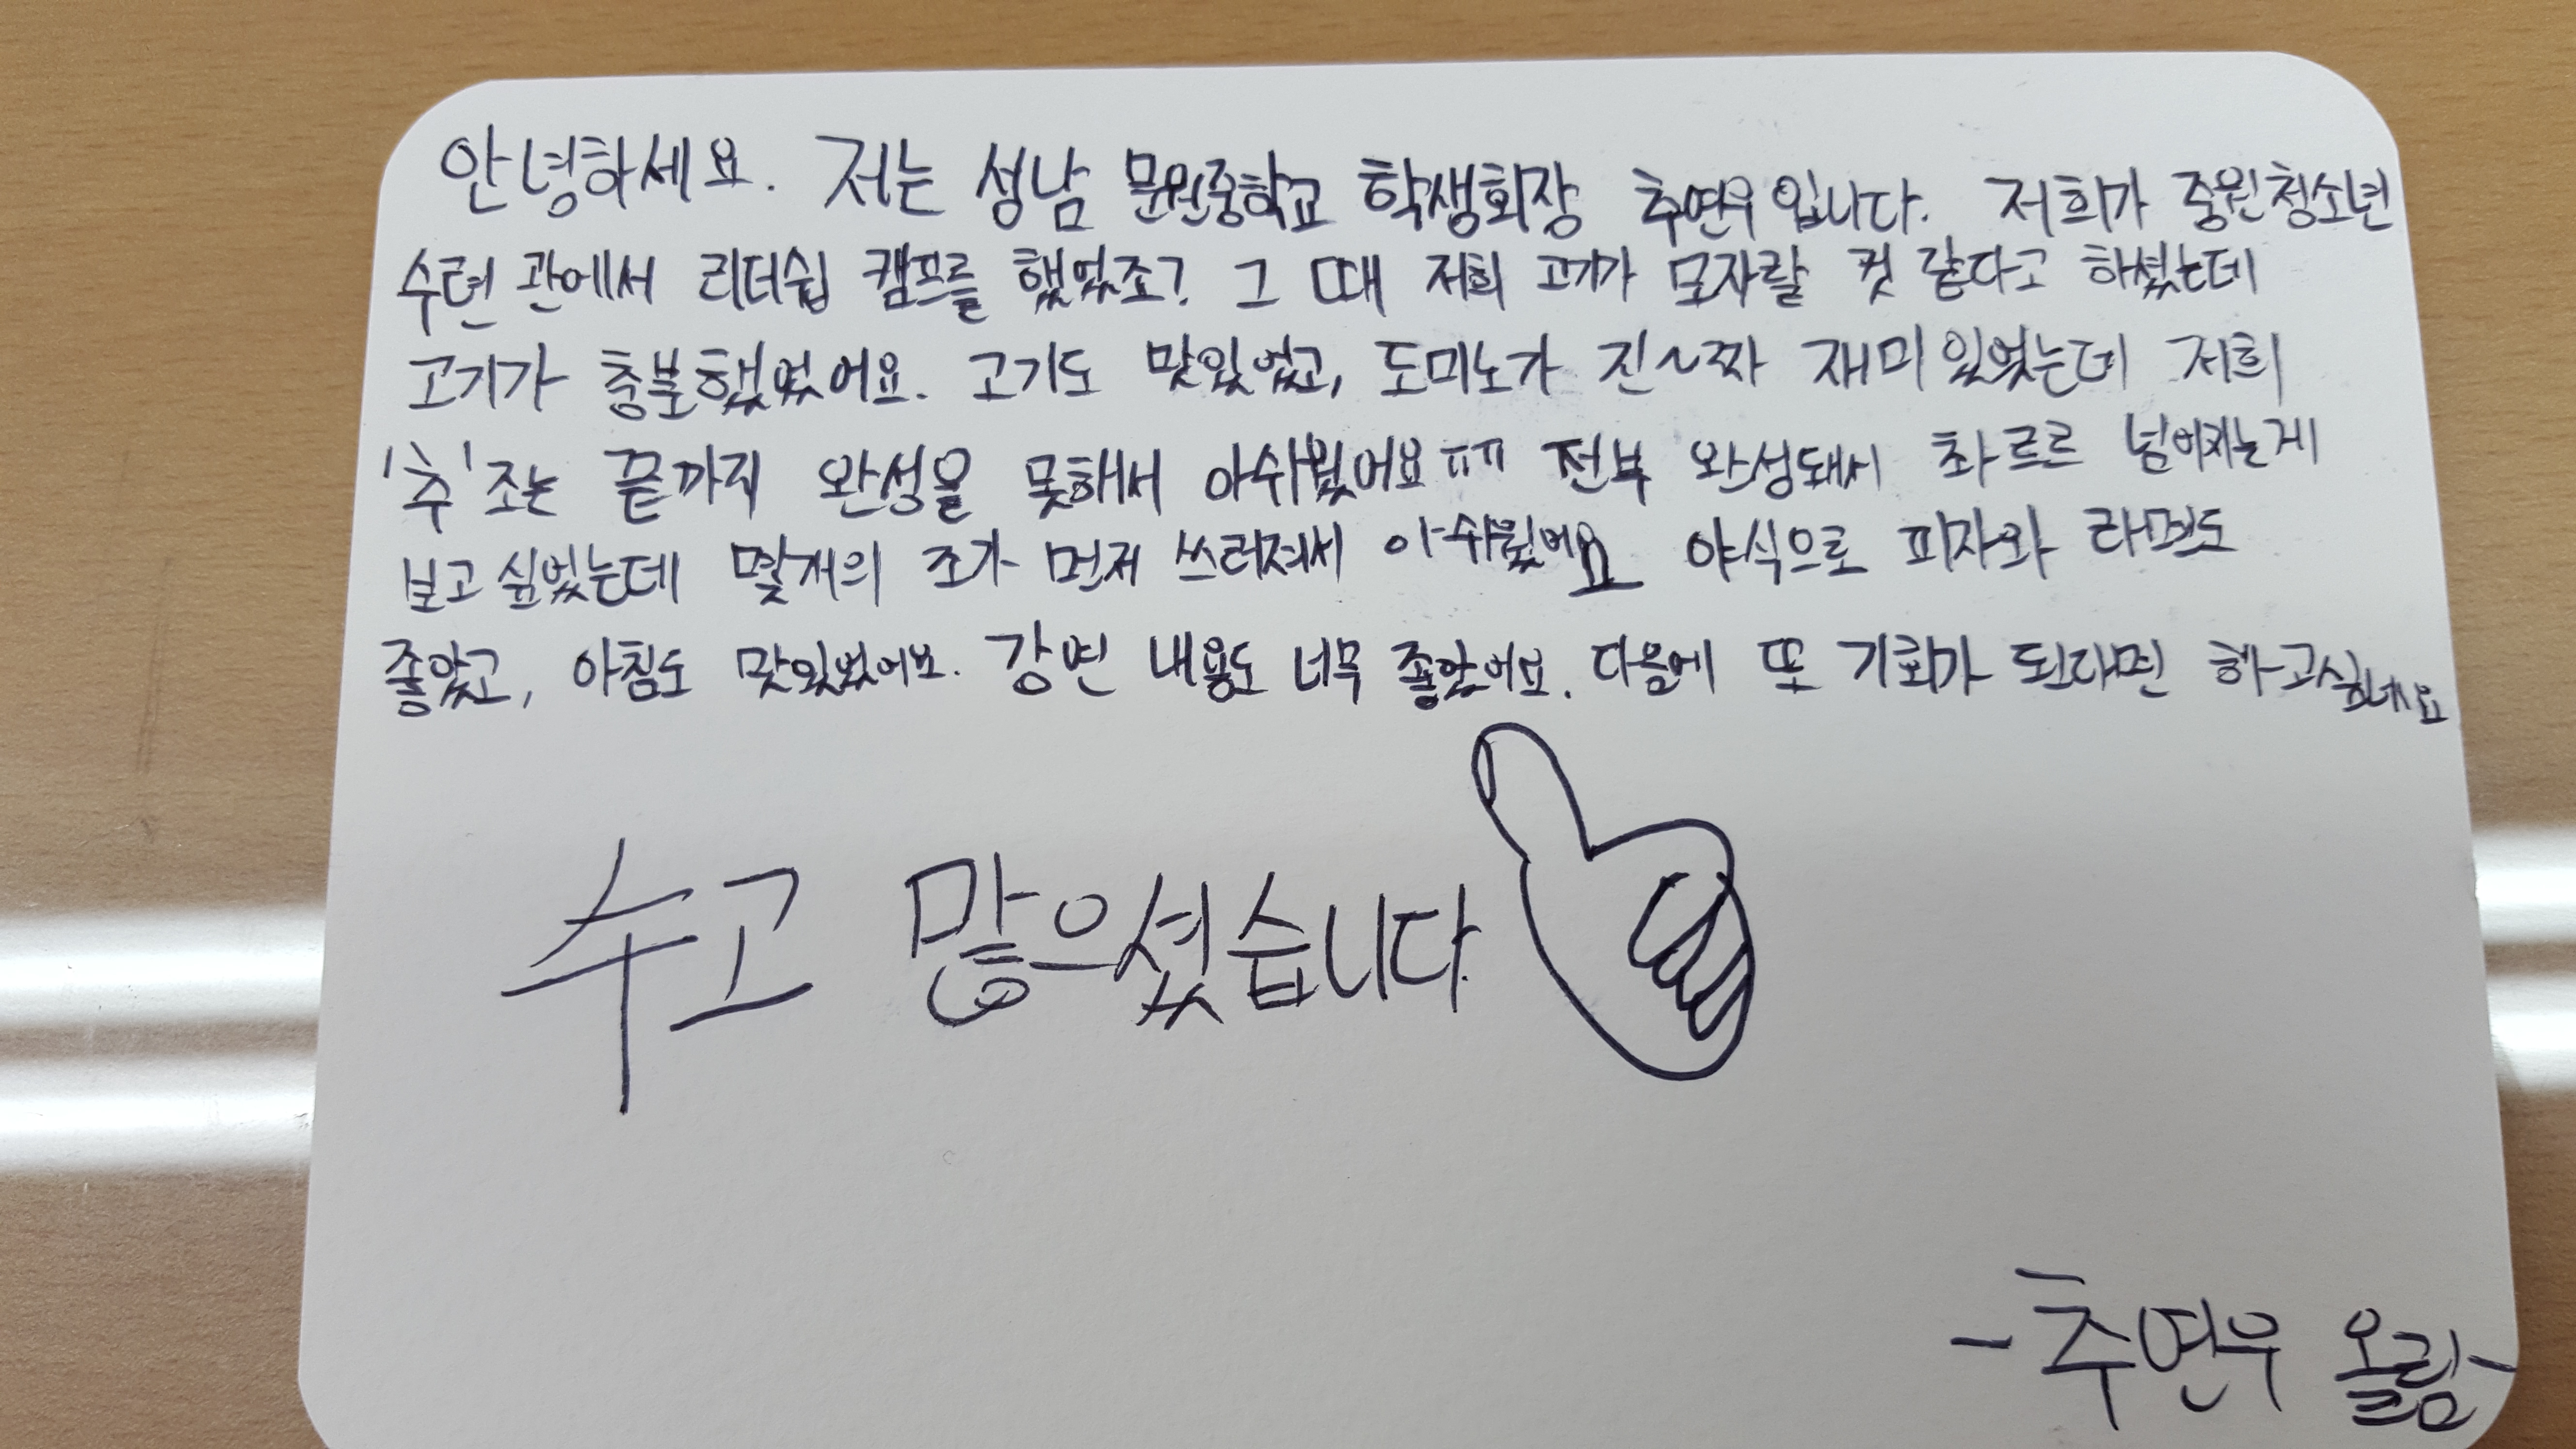 안녕하세요. 저는 성남 문원중학교 학생회장 추연우입니다. 저희가 중원청소년
수련관에서 리더쉽 캠프를 했었죠? 그 때 저희 고기가 모자랄 것 같다고 하셨는데
고기가 충분했었어요. 고기도 맛있었고, 도미노가 진~짜 재미있었는데 저희
'추'조는 끝까지 완성을 못해서 아쉬웠어요ㅠㅠ 전부 완성돼서 촤르르 넘어지는게
보고싶었는데 몇개의 조가 먼저 쓰러져서 아쉬웠어요 야식으로 피자와 라면도
좋았고, 아침도 맛있었어요. 강연 내용도 너무 좋았어요. 다음에 또 기회가 된다면 하고싶네요
수고 많으셨습니다.
-추연우 올림-